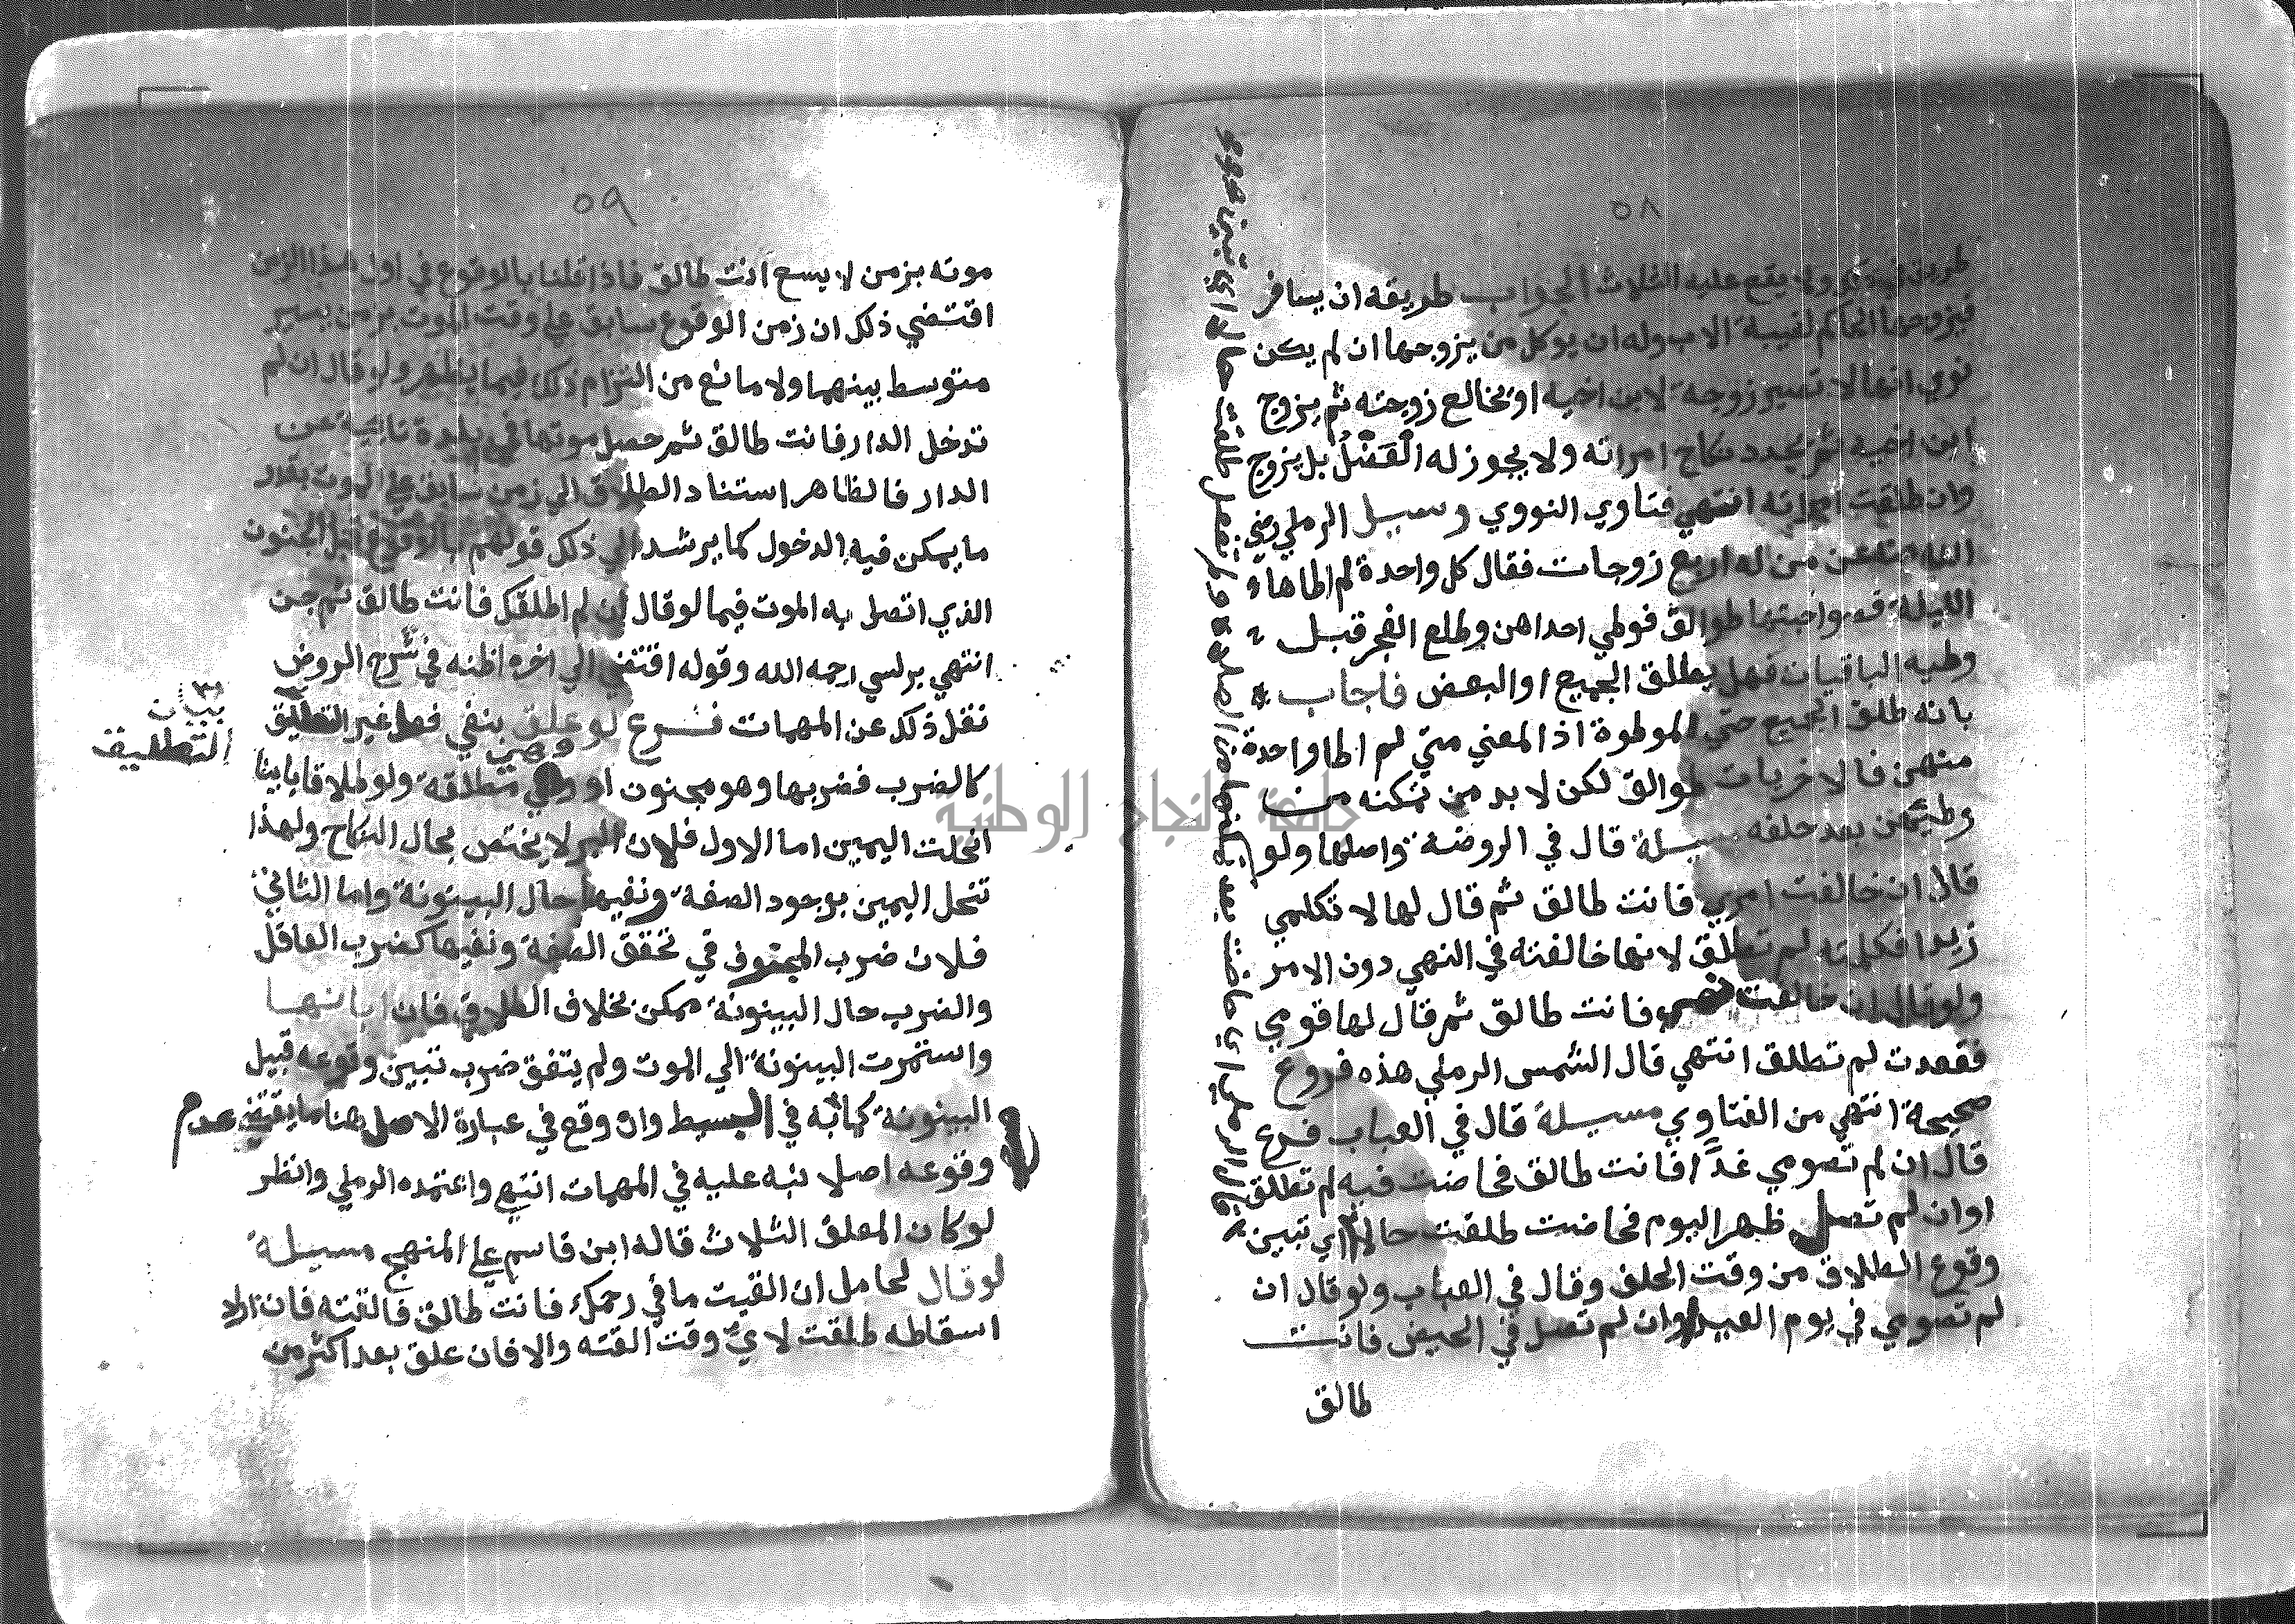 ٥٨
ولا يقع عليه الثلاث الجواب طريقه ان يسافر
فيزوجها الحاكم لغيبة الاب وله ان يوكل من يزوجها ان لم يكن
نوي انها لا تصير زوجة لابن اخيه او يخالع زوجته ثم يزوج
ابن اخيه ثم يجدد نكاح امراته ولا يجوز له العضل بل يزوج
وان طلقت امراته انتهي فتاوي النووي وسيل الرملي رضي
الله عنه عن من له اربع زوجات فقال كل واحدة لم اطاها
الليلة فصواحبتها طوالق فوطي احداهن وطلع الفجر قبل
وطيه الباقيات فهل يطلق الجميع او البعض فاجاب
بانه طلق الجميع حتي الموطوة اذ المعني متي لم اطا واحدة
منهن فالاخريات طوالق لكن لا بد من تمكنه من
وطيهن بعد حلفه مسيلة قال في الروضة واصلها ولو
قال ان خالفت امري فانت طالق ثم قال لها لا تكلمي
زيدا فكلمته لم تطلق لانها خالفته في النهي دون الامر
ولو قال ان خالفت نهيي فانت طالق ثم قال لها قومي
فقعدت لم تطلق انتهي قال الشمس الرملي هذه فروع
صحيحة انتهي من الفتاوي مسيلة قال في العباب فرع
قال ان لم تصومي غدا فانت طالق فحاضت فيه لم تطلق
او ان لم تصل ظهر اليوم فحاضت طلقت حالا اي تبين
وقوع الطلاق من وقت الحلف وقال في العباب ولو قال ان
لم تصومي في يوم العيد او ان لم تصل في الحيض فانت
طالق
٥٩
موته بزمن لا يسع انت طالق فاذا قلنا بالوقوع في اول هذا الزمن
اقتضي ذلك ان زمن الوقوع سابق علي وقت الموت بزمن يسير
متوسط بينهما ولا مانع من التزام ذلك فيما يظهر ولو قال ان لم
تدخل الدار فانت طالق ثم حصل موتها في بلدة نائية عن
الدار فالظاهر استناد الطلاق الي زمن سابق علي الموت بقدر
ما يمكن فيه الدخول كما يرشد الي ذلك قولهم بالوقوع قبل الجنون
الذي اتصل به الموت فيما لو قال ان لم اطلقك فانت طالق ثم جن
انتهي برلسي رحمه الله وقوله اقتضي الي اخره اظنه في شرح الروض
نقل ذلك عن المهمات فرع لو علق بنفي فعل غير التطليق
كالضرب فضربها وهو مجنون او وهي مطلقة ولو طلاقا باينا
انحلت اليمين اما الاول فلان البر لا يختص بحال النكاح ولهذا
تنحل اليمين بوجود الصفة ونفيها حال البينونة واما الثاني
فلان ضرب المجنون في تحقق الصفة ونفيها كضرب العاقل
والضرب حال البينونة ممكن بخلاف الطلاق فان ابانها
واستمرت البينونة الي الموت ولم يتفق ضرب تبين وقوعه قبيل
البينونة كما نبه في البسيط وان وقع في عبارة الاصل هنا ما يقتضي عدم
وقوعه اصلا نبه عليه في المهمات انتهي واعتمده الرملي وانظر
لو كان المعلق الثلاث قاله ابن قاسم علي المنهج مسيلة
لو قال لحامل ان القيت ما في رحمك فانت طالق فالقته فان اراد
اسقاطه طلقت لاي وقت القته والا فان علق بعد اكثر من
بيان
التطليق
جامعة النجاح الوطنية